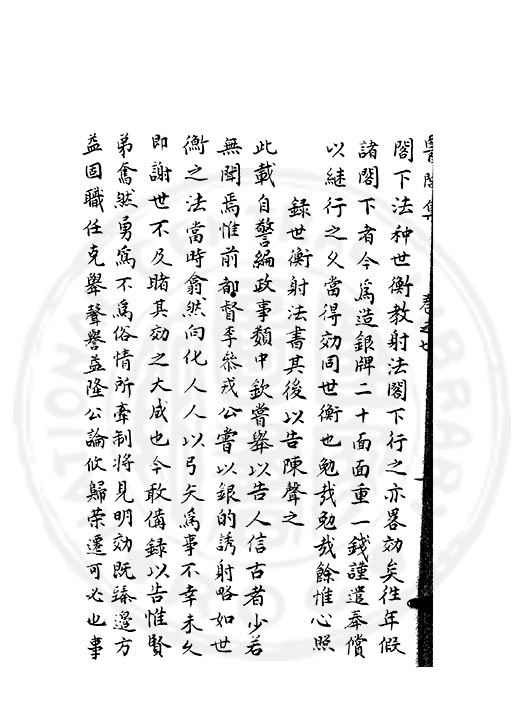 閣下法种世衡教射法閣下行之亦畧效矣徃年假
諸閣下者今爲造銀牌二十面面重一錢謹遣奉償
以継行之久當得効同世衡也勉哉勉哉餘惟心照
録世衡射法書其後以告陳聲之
此載自警編政事類中欽嘗舉以告人信古者少若
無聞焉惟前都督李叅戎公嘗以銀的誘射略如世
衡之法當時翕然向化人人以弓矢爲事不幸未久
即謝世不及睹其効之大成也今敢備録以告惟賢
弟奮然勇爲不爲俗情所牽制將見明効既臻邊方
益固職任克舉聲譽益隆公論攸歸荣遷可必也事